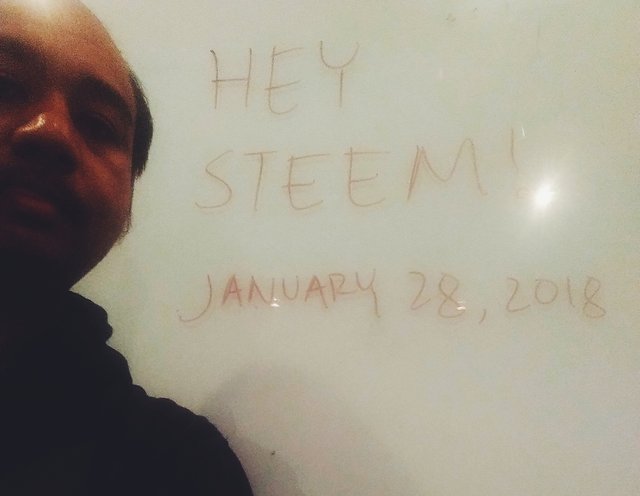 HEY
STEEM!
JANUARY 28, 2018